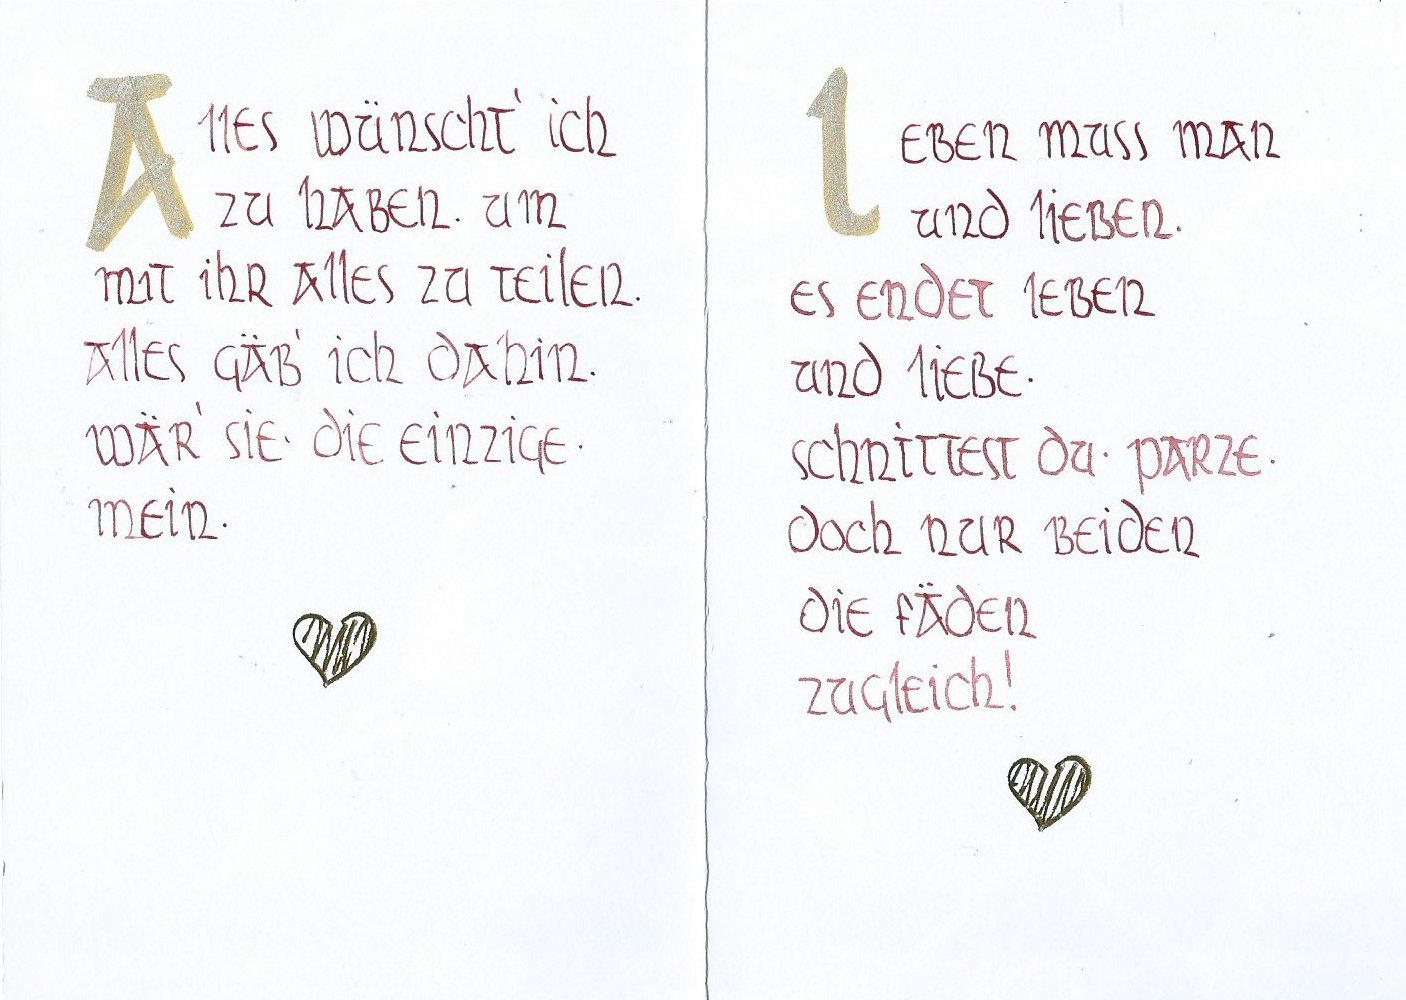 Alles wünscht' ich
zu haben. um
mit ihr alles zu teilen.
alles gäb' ich dahin.
wär' sie. die einzige.
mein.
Leben muss man
und lieben.
es endet leben
und liebe.
schnittest du. parze.
doch nur beiden
die fäden
zugleich!